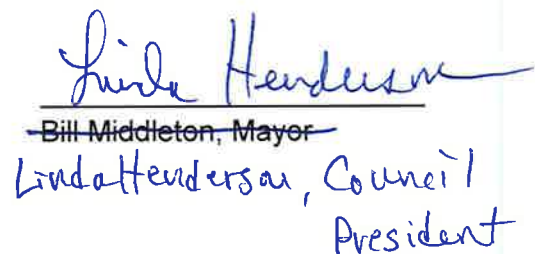 Linda Henderson
Bill Middleton, Mayor
Linda Henderson, Council
President